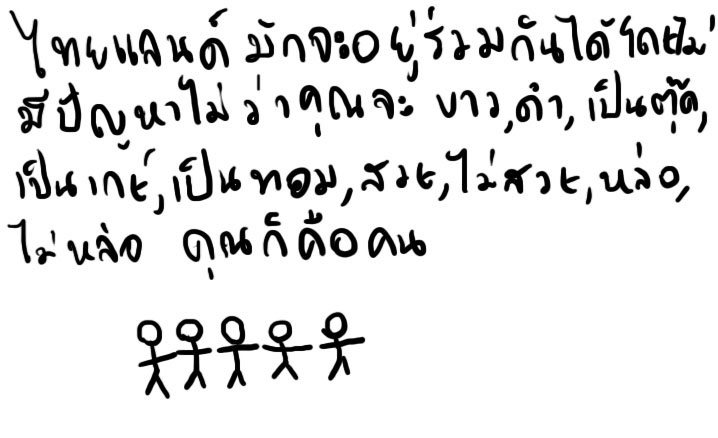 ไทยแลนด์ มักจะอยู่ร่วมกันได้ โดยไม่
มีปัญหาไม่ว่าคุณจะ ขาว, ดำ, เป็นตุ๊ด,
เป็นเกย์, เป็นทอม, สวย, ไม่สวย, หล่อ,
ไม่หล่อ คุณก็คือคน